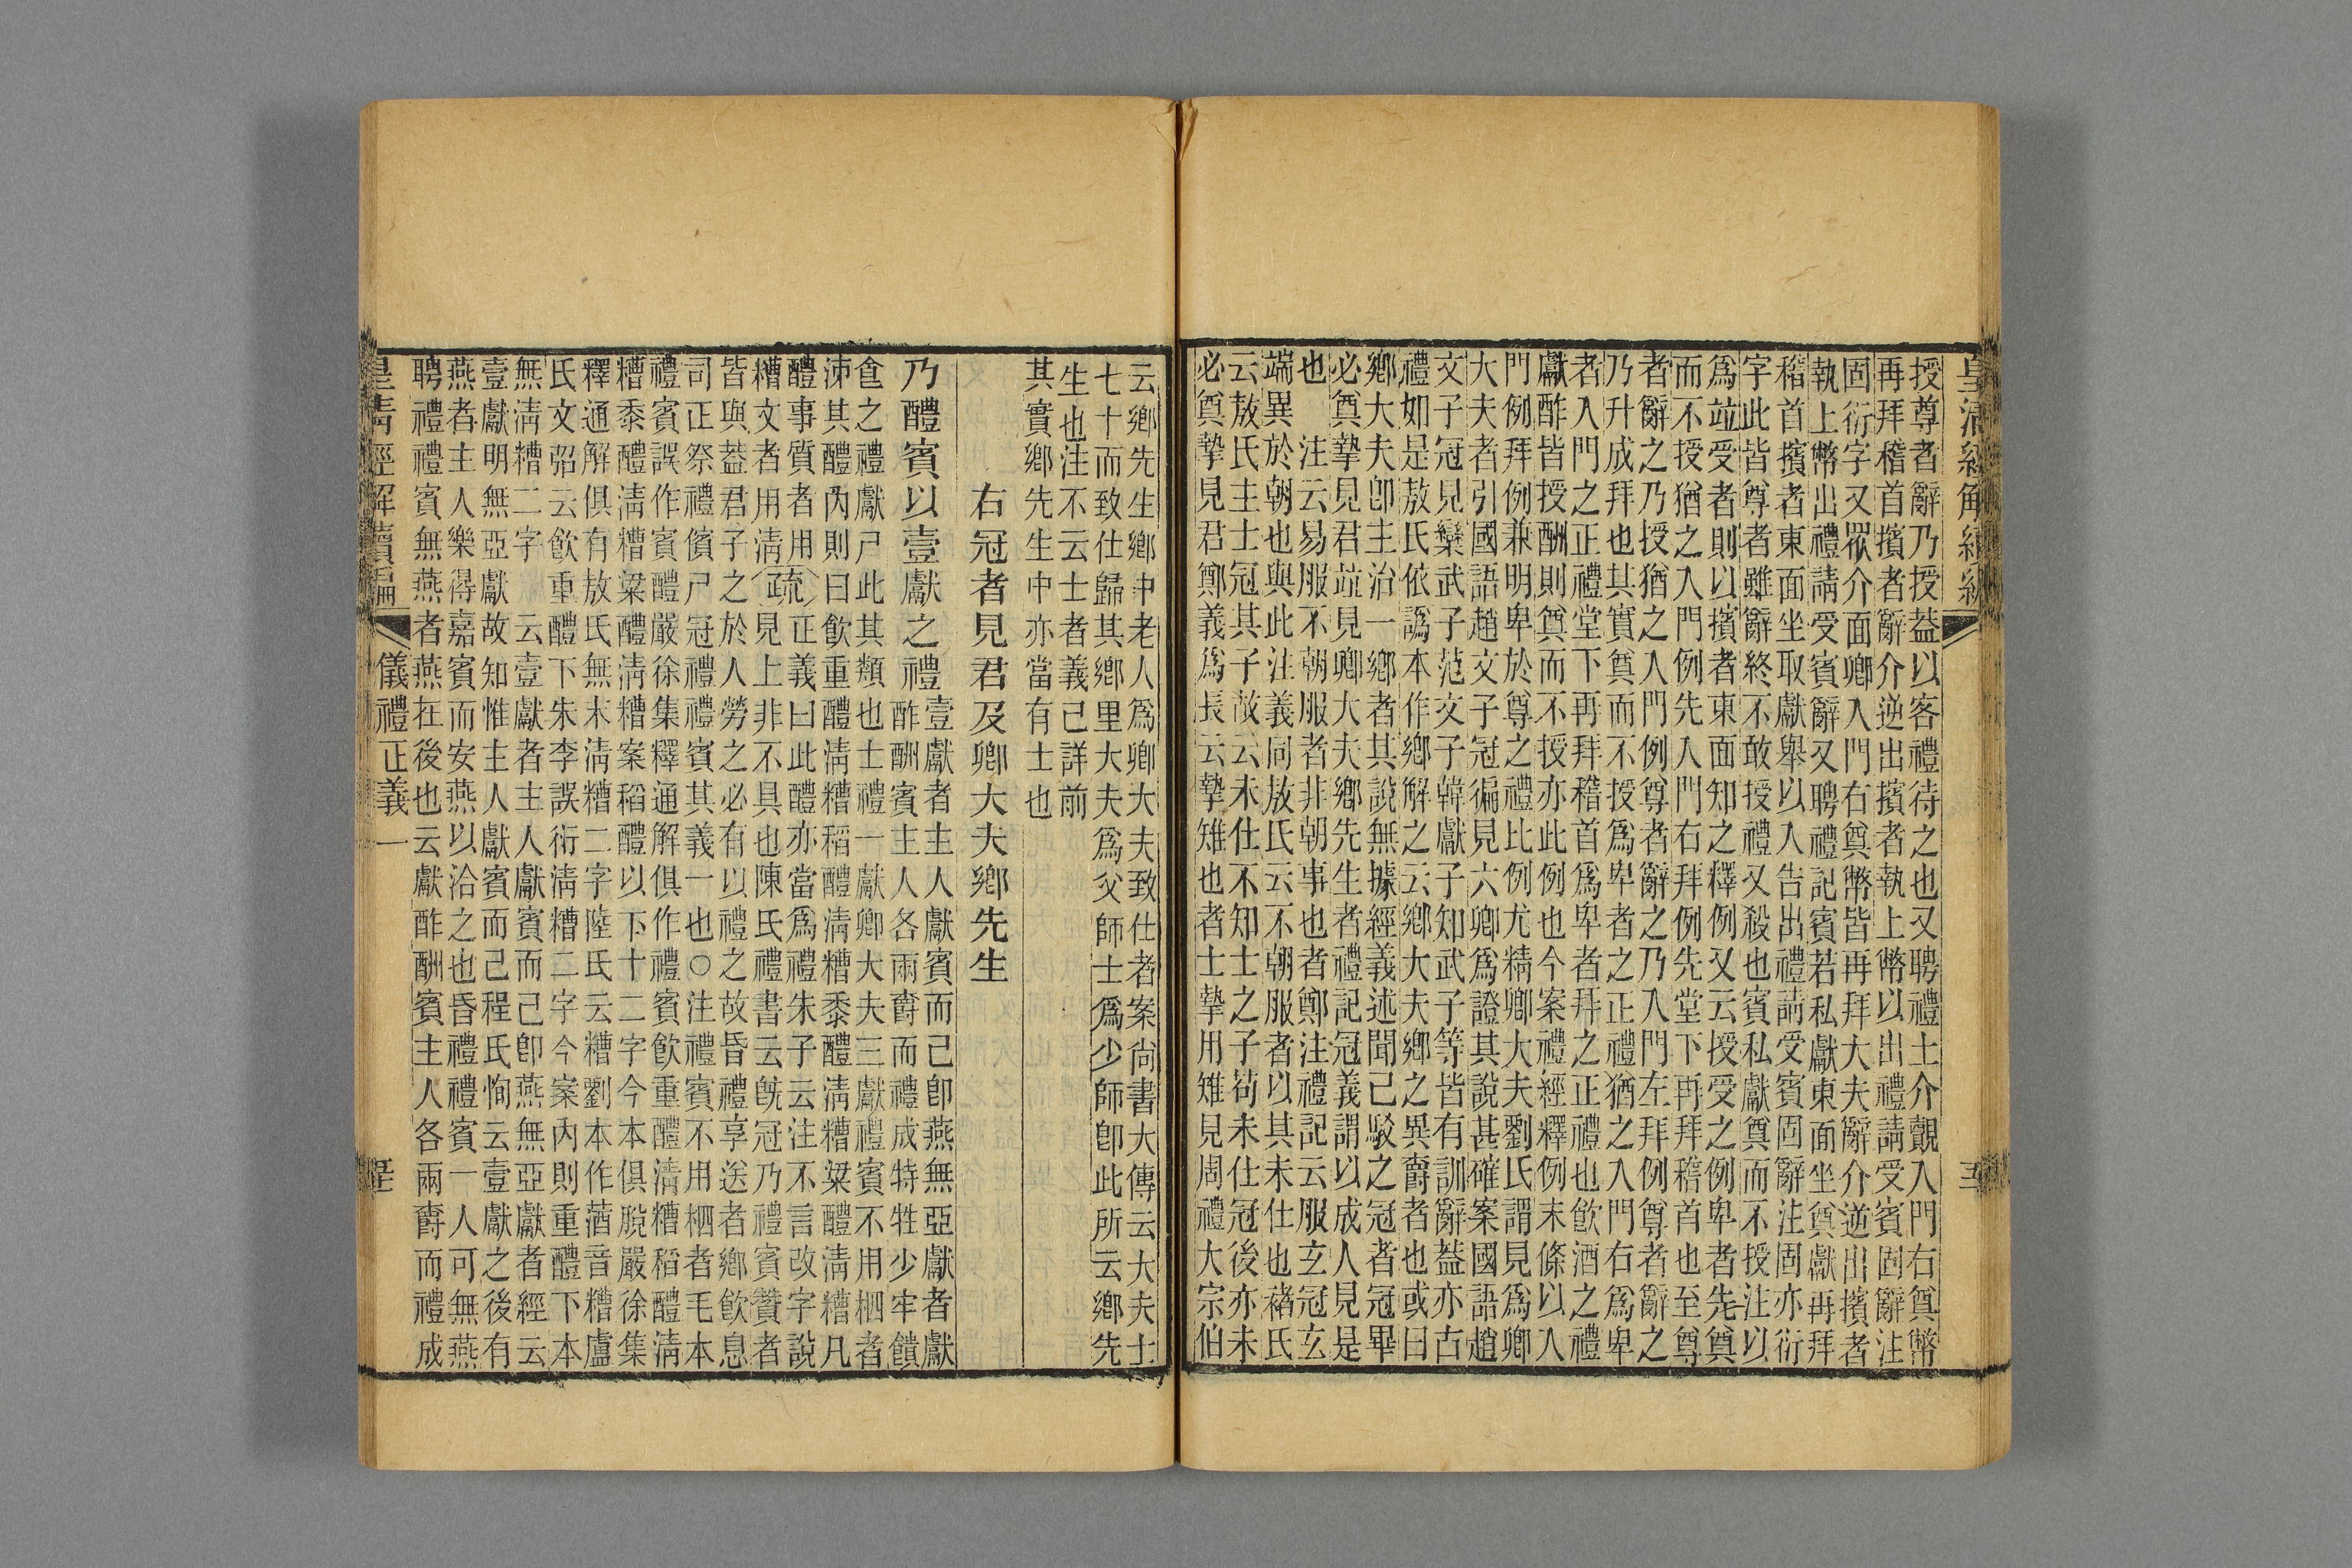 皇清經解續編
授尊者辭乃授葢以客禮待之也又聘禮士介覿入門右奠幣
再拜稽首擯者辭介逆出擯者執上幣以出禮請受賓固辭注
固衍字又眾介面卿入門右奠幣皆再拜大夫辭介逆出擯者
執上幣出禮請受賓辭又聘禮記賓若私獻東面坐奠獻再拜
稽首擯者東面坐取獻舉以入告出禮請受賓固辭注固亦衍
字此皆尊者雖辭終不敢授禮又殺也賓私獻奠而不授注以
爲竝受者則以擯者東面知之釋例又云授受之例卑者先奠
而不授猶之入門例先入門右拜例先堂下再拜稽首也至尊
者辭之乃授猶之入門例尊者辭之乃入門左拜例尊者辭之
乃升成拜也其實奠而不授爲卑者之正禮猶之入門右爲卑
者入門之正禮堂下再拜稽首爲卑者拜之正禮也飲酒之禮
獻酢皆授酬則奠而不授亦此例也今案禮經釋例末條以入
門例拜例兼明卑於尊之禮比例尤精卿大夫劉氏謂見爲卿
大夫者引國語趙文子冠徧見六卿爲證其說甚確案國語趙
文子冠見欒武子范文子韓獻子知武子等皆有訓辭葢亦古
禮如是敖氏依譌本作鄉解之云鄉大夫鄉之異爵者也或曰
鄉大夫卽主治一鄉者其說無據經義述聞已駁之冠者冠畢
必奠摯見君竝見卿大夫鄉先生者禮記冠義謂以成人見是
也　注云易服不朝服者非朝事也者鄭注禮記云服玄冠玄
端異於朝也與此注義同敖氏云不朝服者以其未仕也褚氏
云敖氏主士冠其子故云未仕不知士之子茍未仕冠後亦未
必奠摯見君鄭義爲長云摯雉也者士摯用雉見周禮大宗伯
云鄉先生鄉中老人爲卿大夫致仕者案尙書大傳云大夫士
七十而致仕歸其鄉里大夫爲父師士爲少師卽此所云鄉先
生也注不云士者義已詳前
其實鄉先生中亦當有士也
右冠者見君及卿大夫鄉先生
乃醴賓以壹獻之禮壹獻者主人獻賓而已卽燕無亞獻者獻
酢酬賓主人各兩爵而禮成特牲少牢饋
食之禮獻尸此其類也士禮一獻卿大夫三獻禮賓不用柶者
泲其醴內則曰飮重醴淸糟稻醴淸糟黍醴淸糟粱醴淸糟凡
醴事質者用糟文者用淸疏正義曰此醴亦當爲禮朱子云注不言改字說
見上非不具也陳氏禮書云旣冠乃禮賓贊者
皆與葢君子之於人勞之必有以禮之故昏禮享送者鄉飮息
司正祭禮儐尸冠禮禮賓其義一也○注禮賓不用柶者毛本
禮賓誤作賓醴嚴徐集釋通解俱作禮賓飮重醴淸糟稻醴淸
糟黍醴淸糟粱醴淸糟案稻醴以下十二字今本俱脫嚴徐集
釋通解俱有敖氏無末淸糟二字陸氏云糟劉本作蕕音糟盧
氏文弨云飮重醴下朱李誤衍淸糟二字今案內則重醴下本
無淸糟二字　云壹獻者主人獻賓而已卽燕無亞獻者經云
壹獻明無亞獻故知惟主人獻賓而已程氏恂云壹獻之後有
燕燕者主人樂得嘉賓而安燕以洽之也昏禮禮賓一人可無燕
聘禮禮賓無燕者燕在後也云獻酢酬賓主人各兩爵而禮成
皇淸經解續編　儀禮正義一